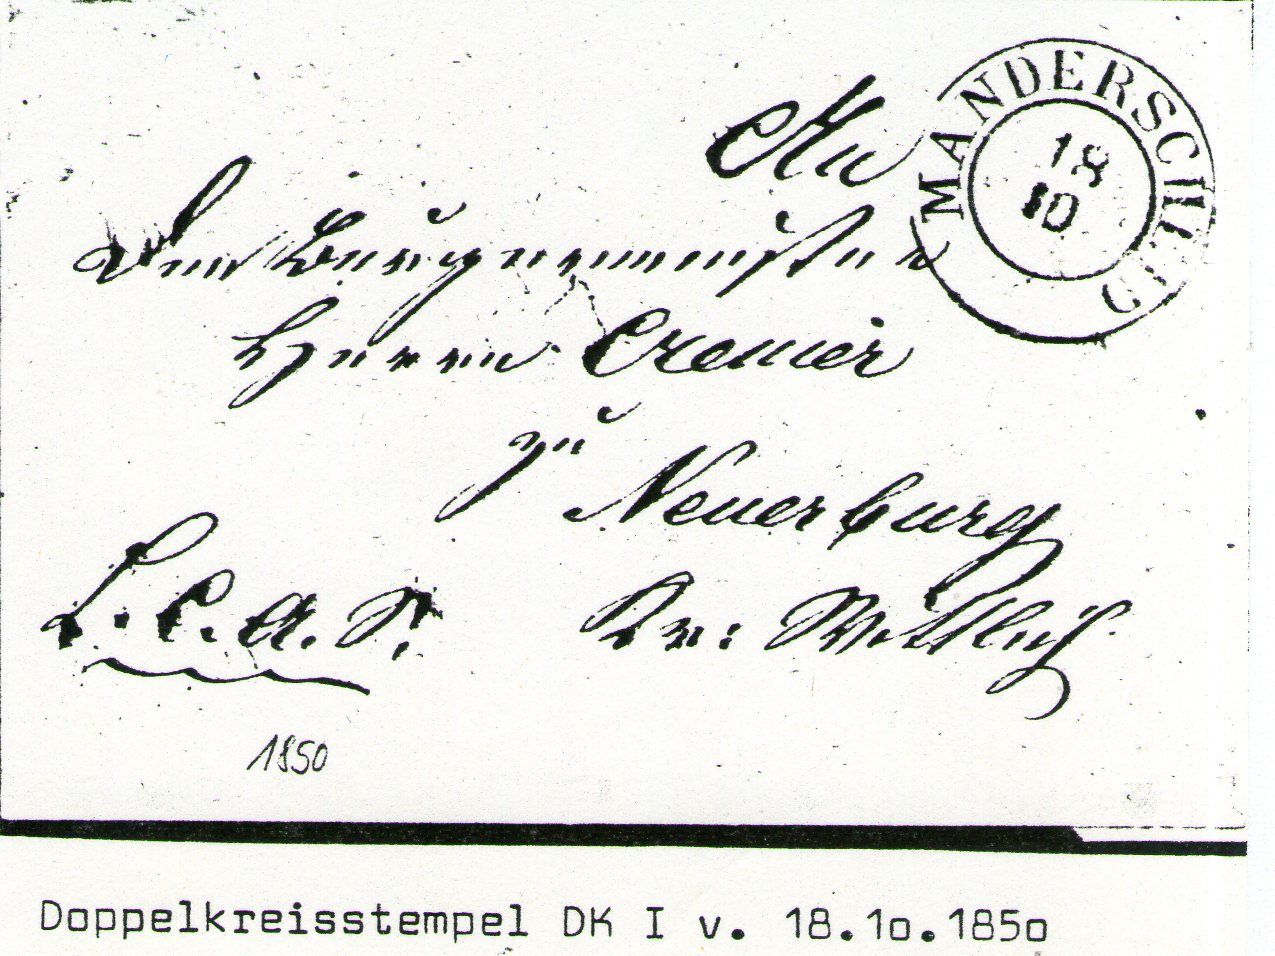 An
MANDERSCHEID
18
10
den Burgermeister
Herrn Cremer
zu
Neuerburg
Kr: Wittlich
1850
Doppelkreisstempel DK I v. 18.1o.185o